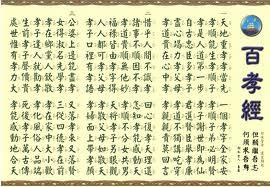 百孝經
但願繼吾志
一
天地重孝孝當先 一個孝字全家安
孝順能生孝順子 孝順子弟必明賢
孝是人道第一步 孝子謝世即為仙
自古忠臣多孝子 君選賢臣舉孝廉
盡心竭力孝父母 孝道不獨講吃穿
孝道貴在心中孝 孝親親責莫回言
二
惜乎人間不識孝 回心復孝天理還
諸事不順因不孝 怎知孝能感動天
孝道貴順無他妙 孝順不分女共男
福祿皆由孝字得 天將孝子另眼觀
人人都可孝父母 孝敬父母如敬天
孝子口裡有孝語 孝婦面上帶孝顏
三
公婆上邊能盡孝 又落孝來又落賢
女得淑名先學孝 三從四德孝在前
孝在鄉黨人欽敬 孝在家中大小歡
孝子逢人就勸孝 孝化風俗人品端
生前孝子聲價貴 死後孝子萬古傳
處世惟有孝力大 孝能感動地合天